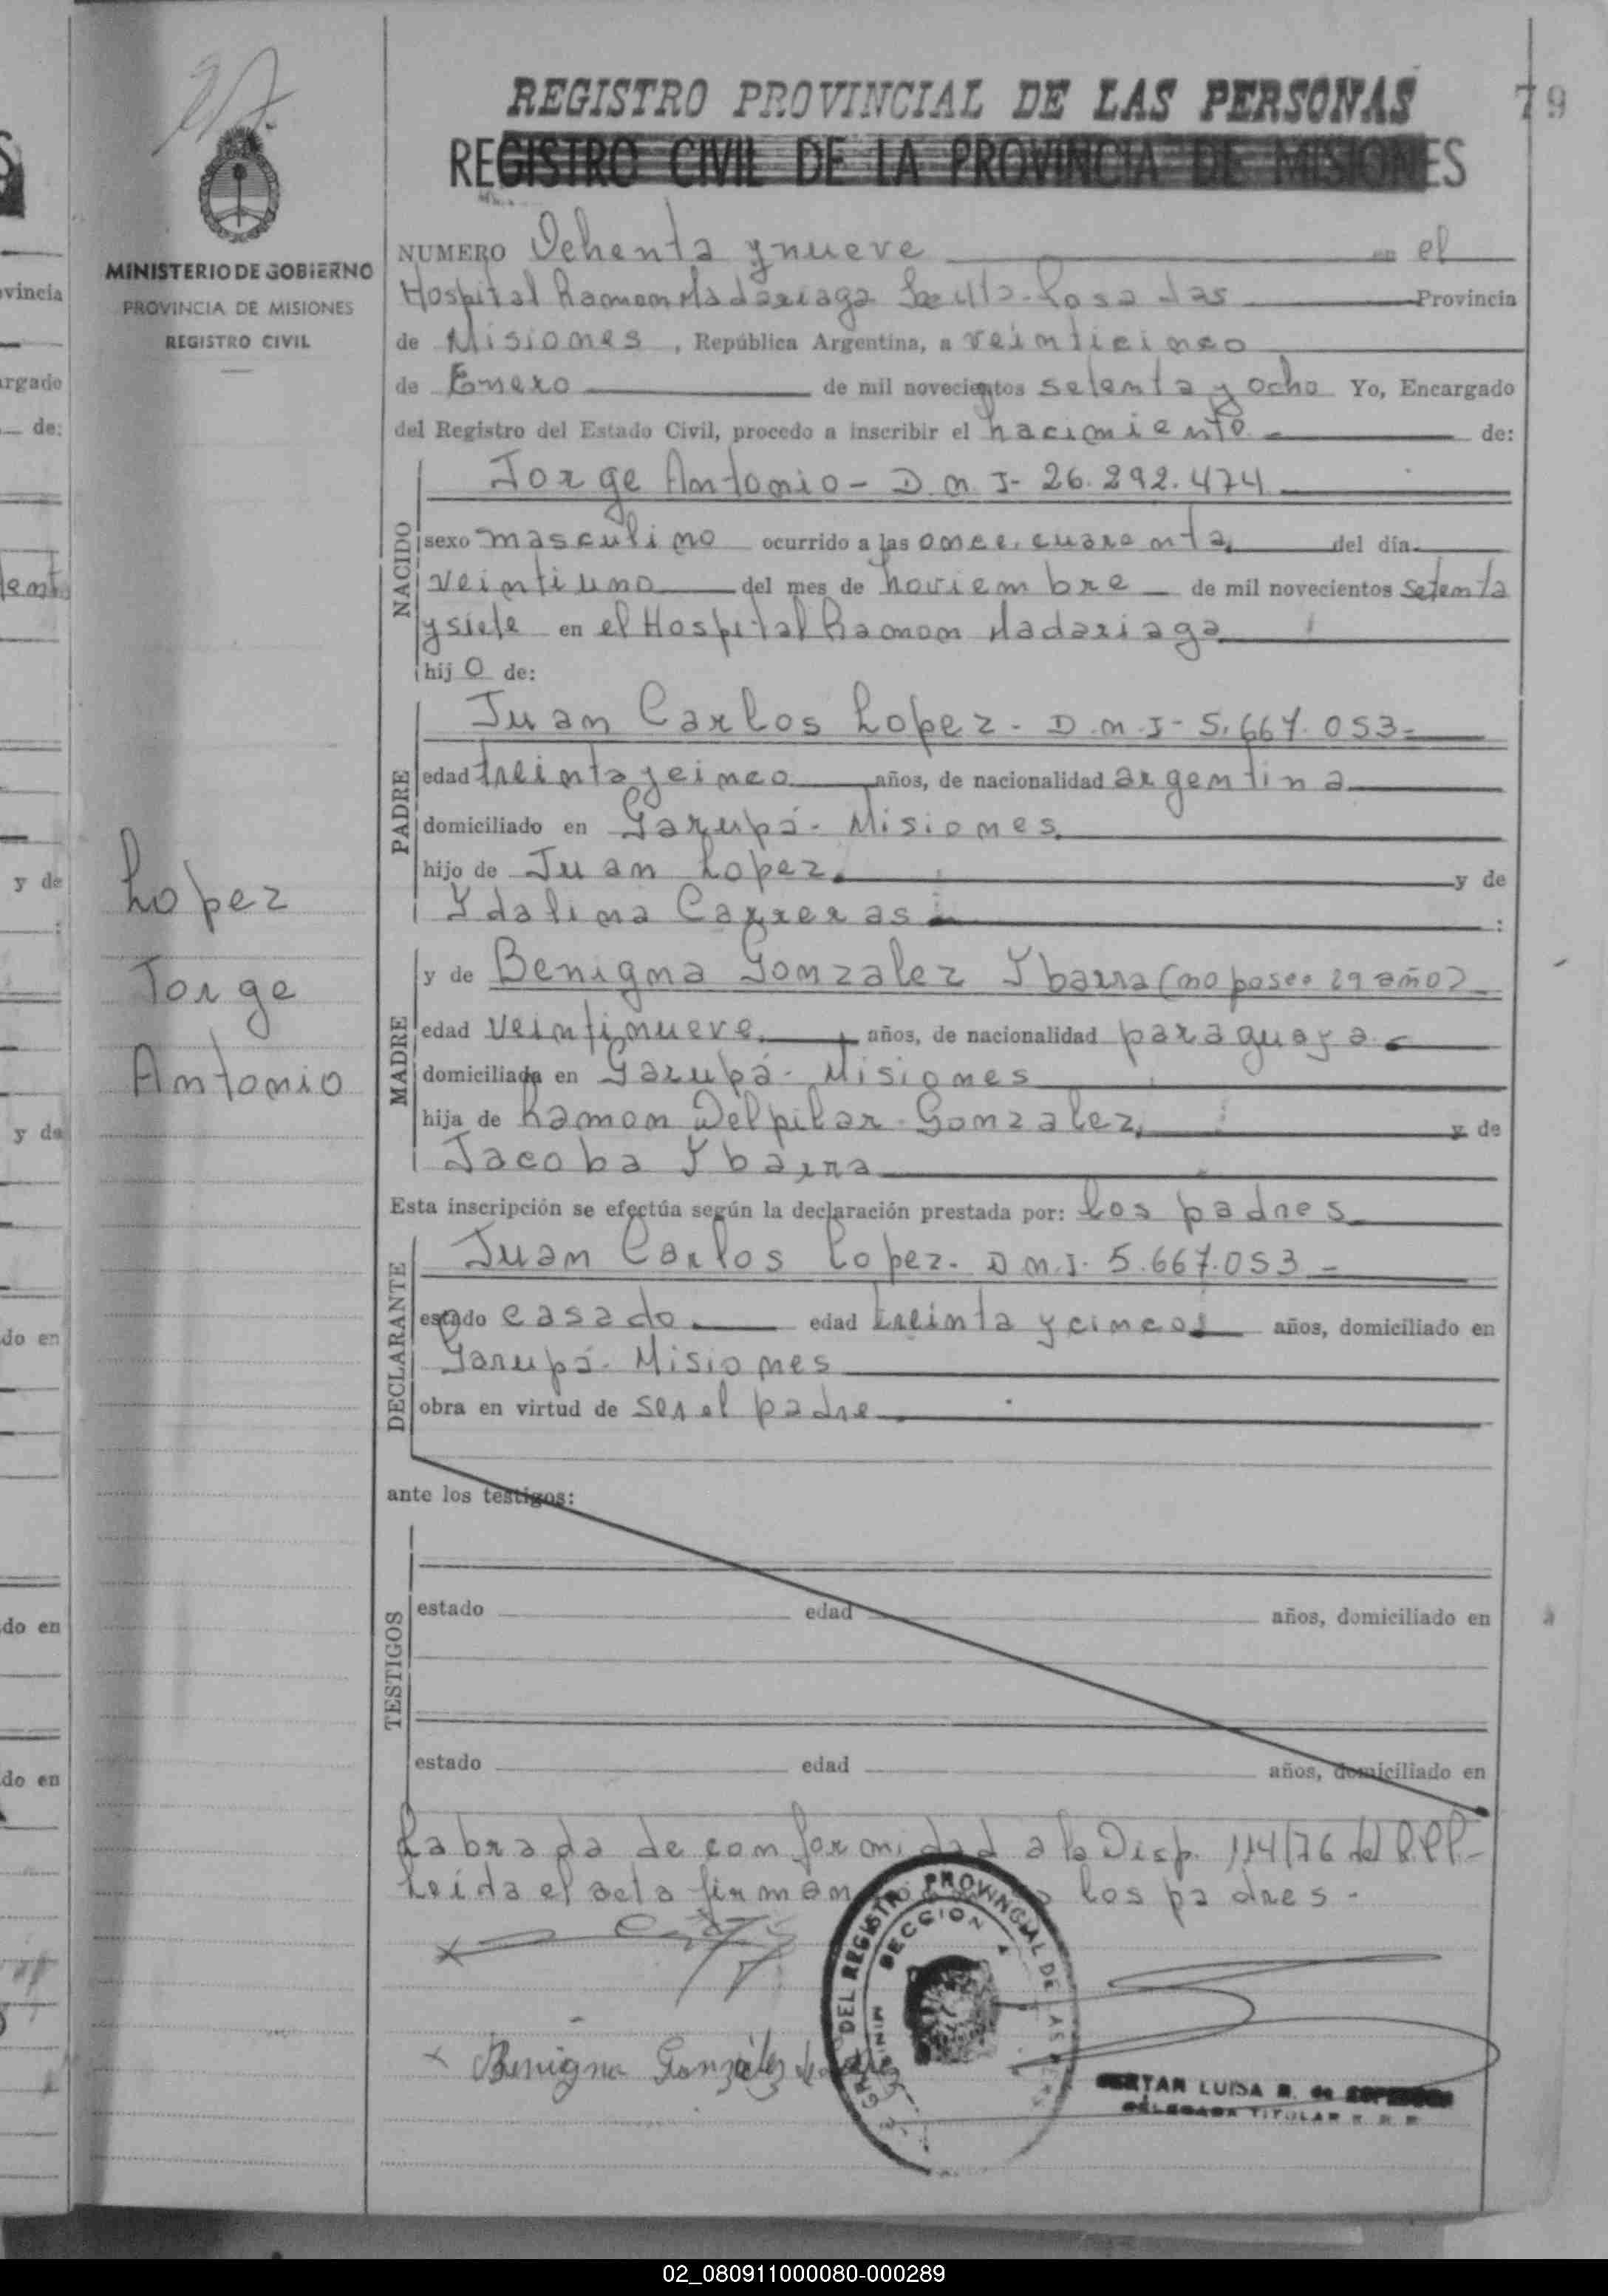 REGISTRO PROVINCIAL DE LAS PERSONAS
79
REGISTRO CIVIL DE LA PROVINCIA DE MISIONES
MINISTERIO DE GOBIERNO
PROVINCIA DE MISIONES
REGISTRO CIVIL
Lopez
Jorge
Antonio
NUMERO Ochenta y nueve en el
Hospital Ramon Madariaga Posadas Provincia
de Misiones, República Argentina, a veinticinco
de Enero de mil novecientos setenta y ocho Yo, Encargado
del Registro del Estado Civil, procedo a inscribir el nacimiento de:
NACIDO
Jorge Antonio - D.N.I - 26.292.474
sexo masculino ocurrido a las once, cuarenta del día
veintiuno del mes de noviembre de mil novecientos setenta
y siete en el Hospital Ramon Madariaga
hijo de:
PADRE
Juan Carlos Lopez - D.N.I - 5.667.053 -
edad treinta y cinco años, de nacionalidad argentina
domiciliado en Garupá - Misiones
hijo de Juan Lopez y de
Ydalina Carreras :
MADRE
y de Benigna Gonzalez Ybarra (no posee 29 año)
edad veintinueve años, de nacionalidad paraguaya
domiciliada en Garupá - Misiones
hija de Ramon Delpilar Gonzalez y de
Jacoba Ybarra
Esta inscripción se efectúa según la declaración prestada por: los padres
DECLARANTE
Juan Carlos Lopez - D.N.I. 5.667.053 -
estado casado edad treinta y cinco años, domiciliado en
Garupá - Misiones
obra en virtud de ser el padre
ante los testigos:
TESTIGOS
estado edad años, domiciliado en
estado edad años, domiciliado en
Labrada de conformidad a la Disp. 114/76 del R.P.P.-
Leída el acta firman los padres -
DEL REGISTRO PROVINCIAL DE LAS
x Benigna González
LUISA R. de
DELEGADA TITULAR
y de
y de
do en
do en
do en
02_080911000080-000289